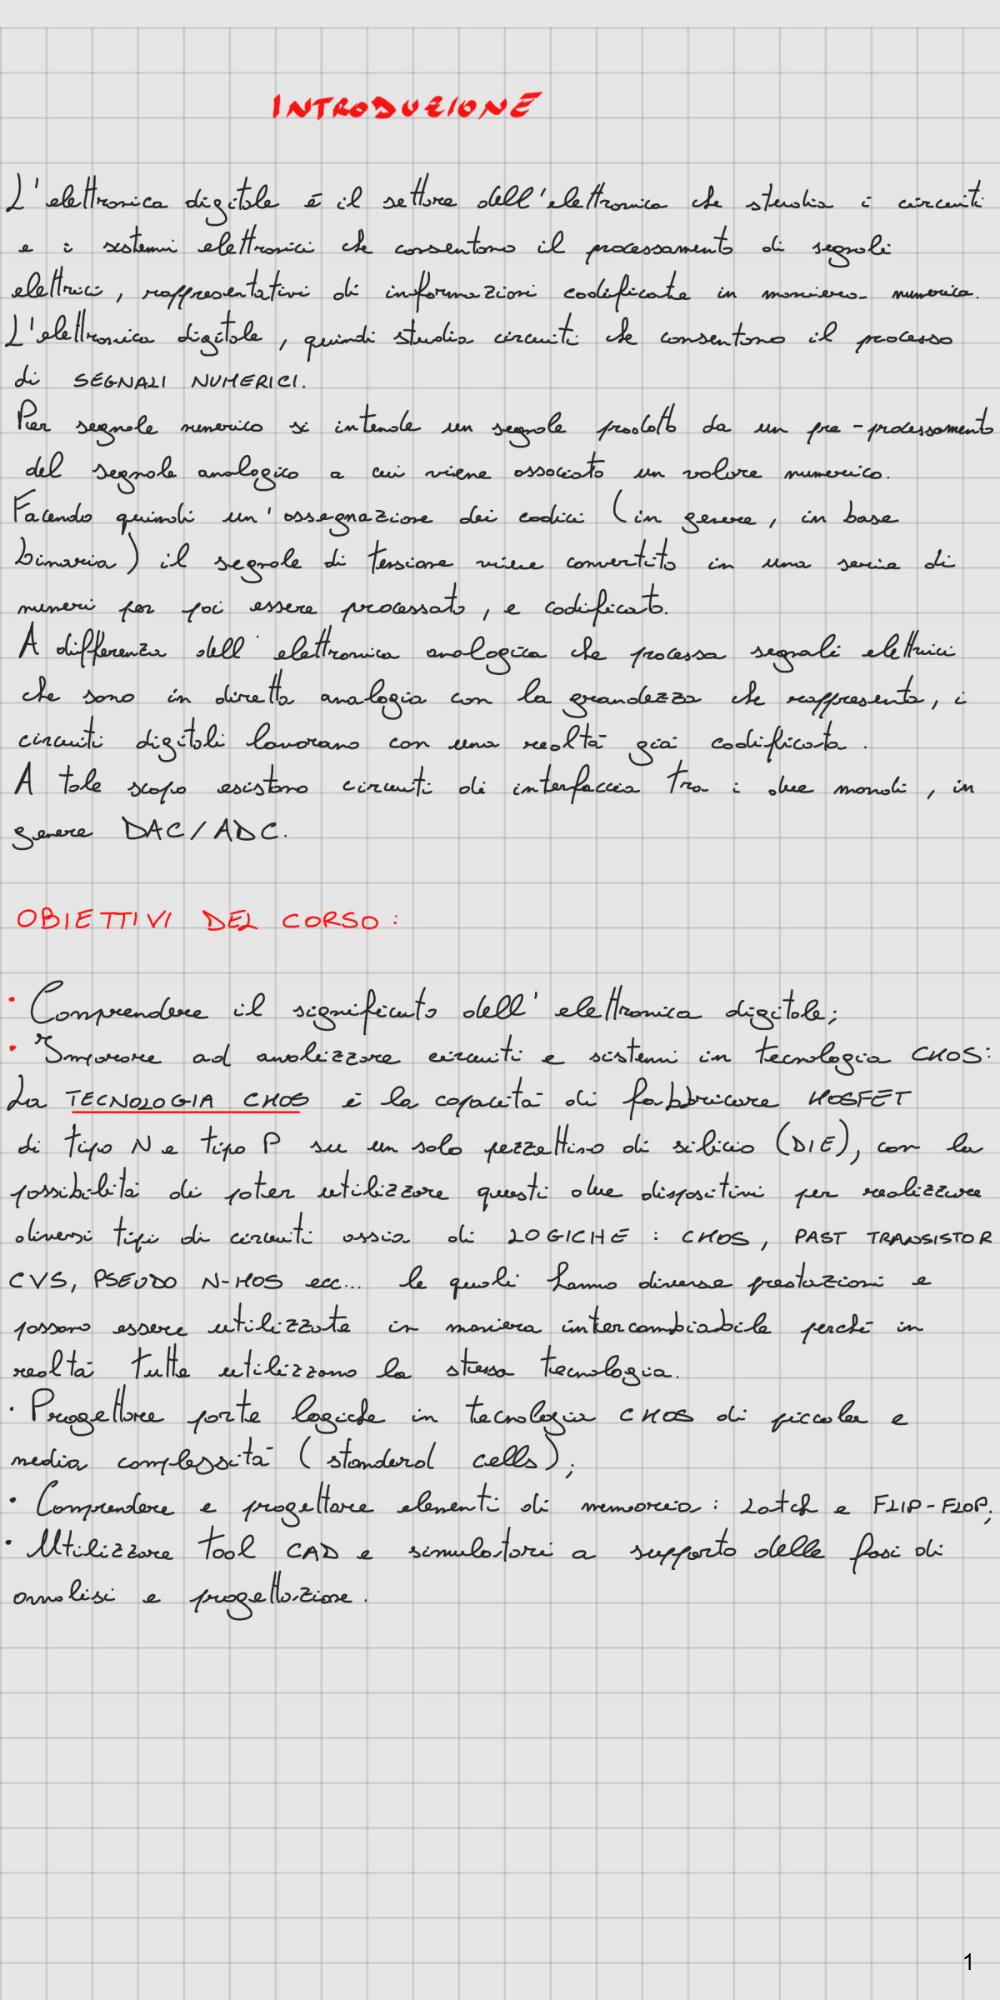 INTRODUZIONE
L'elettronica digitale è il settore dell'elettronica che studia i circuiti
e i sistemi elettronici che consentono il processamento di segnali
elettrici, rappresentativi di informazioni codificate in maniera numerica.
L'elettronica digitale, quindi studia circuiti che consentono il processo
di SEGNALI NUMERICI.
Per segnale numerico si intende un segnale prodotto da un pre-processamento
del segnale analogico a cui viene associato un valore numerico.
Facendo quindi un'assegnazione dei codici (in genere, in base
binaria) il segnale di tensione viene convertito in una serie di
numeri per poi essere processato, e codificato.
A differenza dell'elettronica analogica che processa segnali elettrici
che sono in diretta analogia con la grandezza che rappresenta, i
circuiti digitali lavorano con una realtà già codificata.
A tale scopo esistono circuiti di interfaccia tra i due mondi, in
genere DAC/ADC.
OBIETTIVI DEL CORSO:
• Comprendere il significato dell'elettronica digitale;
• Imparare ad analizzare circuiti e sistemi in tecnologia CMOS:
La TECNOLOGIA CMOS è la capacità di fabbricare MOSFET
di tipo N e tipo P su un solo pezzettino di silicio (DIE), con la
possibilità di poter utilizzare questi due dispositivi per realizzare
diversi tipi di circuiti ossia di LOGICHE: CMOS, PAST TRANSISTOR
CVS, PSEUDO N-MOS ecc... le quali hanno diverse prestazioni e
possono essere utilizzate in maniera intercambiabile perchè in
realtà tutte utilizzano la stessa tecnologia.
• Progettare porte logiche in tecnologia CMOS di piccola e
media complessità (standard cells);
• Comprendere e progettare elementi di memoria: Latch e FLIP-FLOP;
• Utilizzare tool CAD e simulatori a supporto delle fasi di
analisi e progettazione.
1